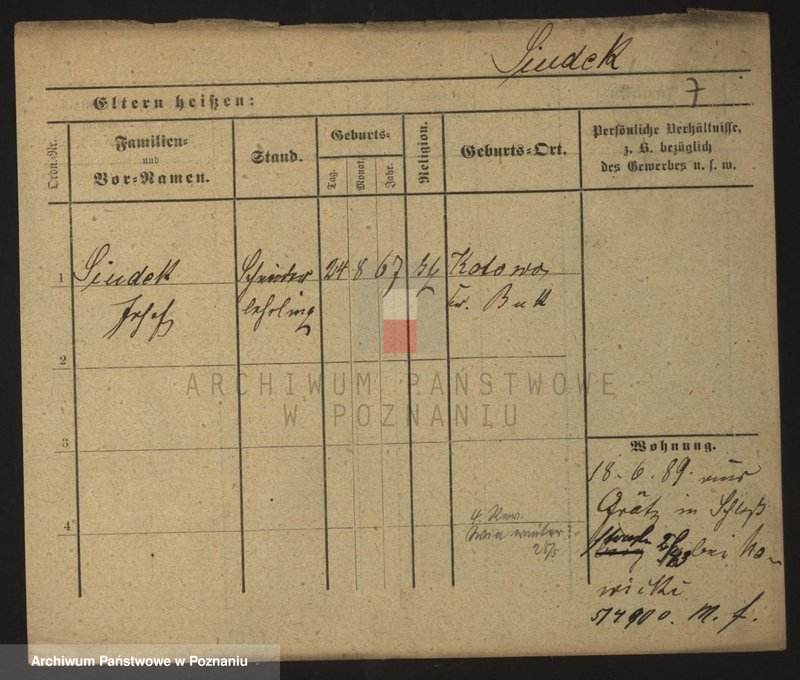 Siudek
7
Eltern heißen:
Ordn.-Nr.
Familien-
und
Vor-Namen.
Stand.
Geburts-
Tag.
Monat.
Jahr.
Religion.
Geburts-Ort.
Persönliche Verhältnisse,
z. B. bezüglich
des Gewerbes u. s. w.
1 Siudek Schneider 24 8 67 Kotowo
Josef lehrling Kr. Buk
2
ARCHIWUM PAŃSTWOWE
W POZNANIU
3
Wohnung.
18. 6. 89. aus
Grätz in Schloß
4
straße bei No-
wicki
514900. M. f.
Archiwum Państwowe w Poznaniu